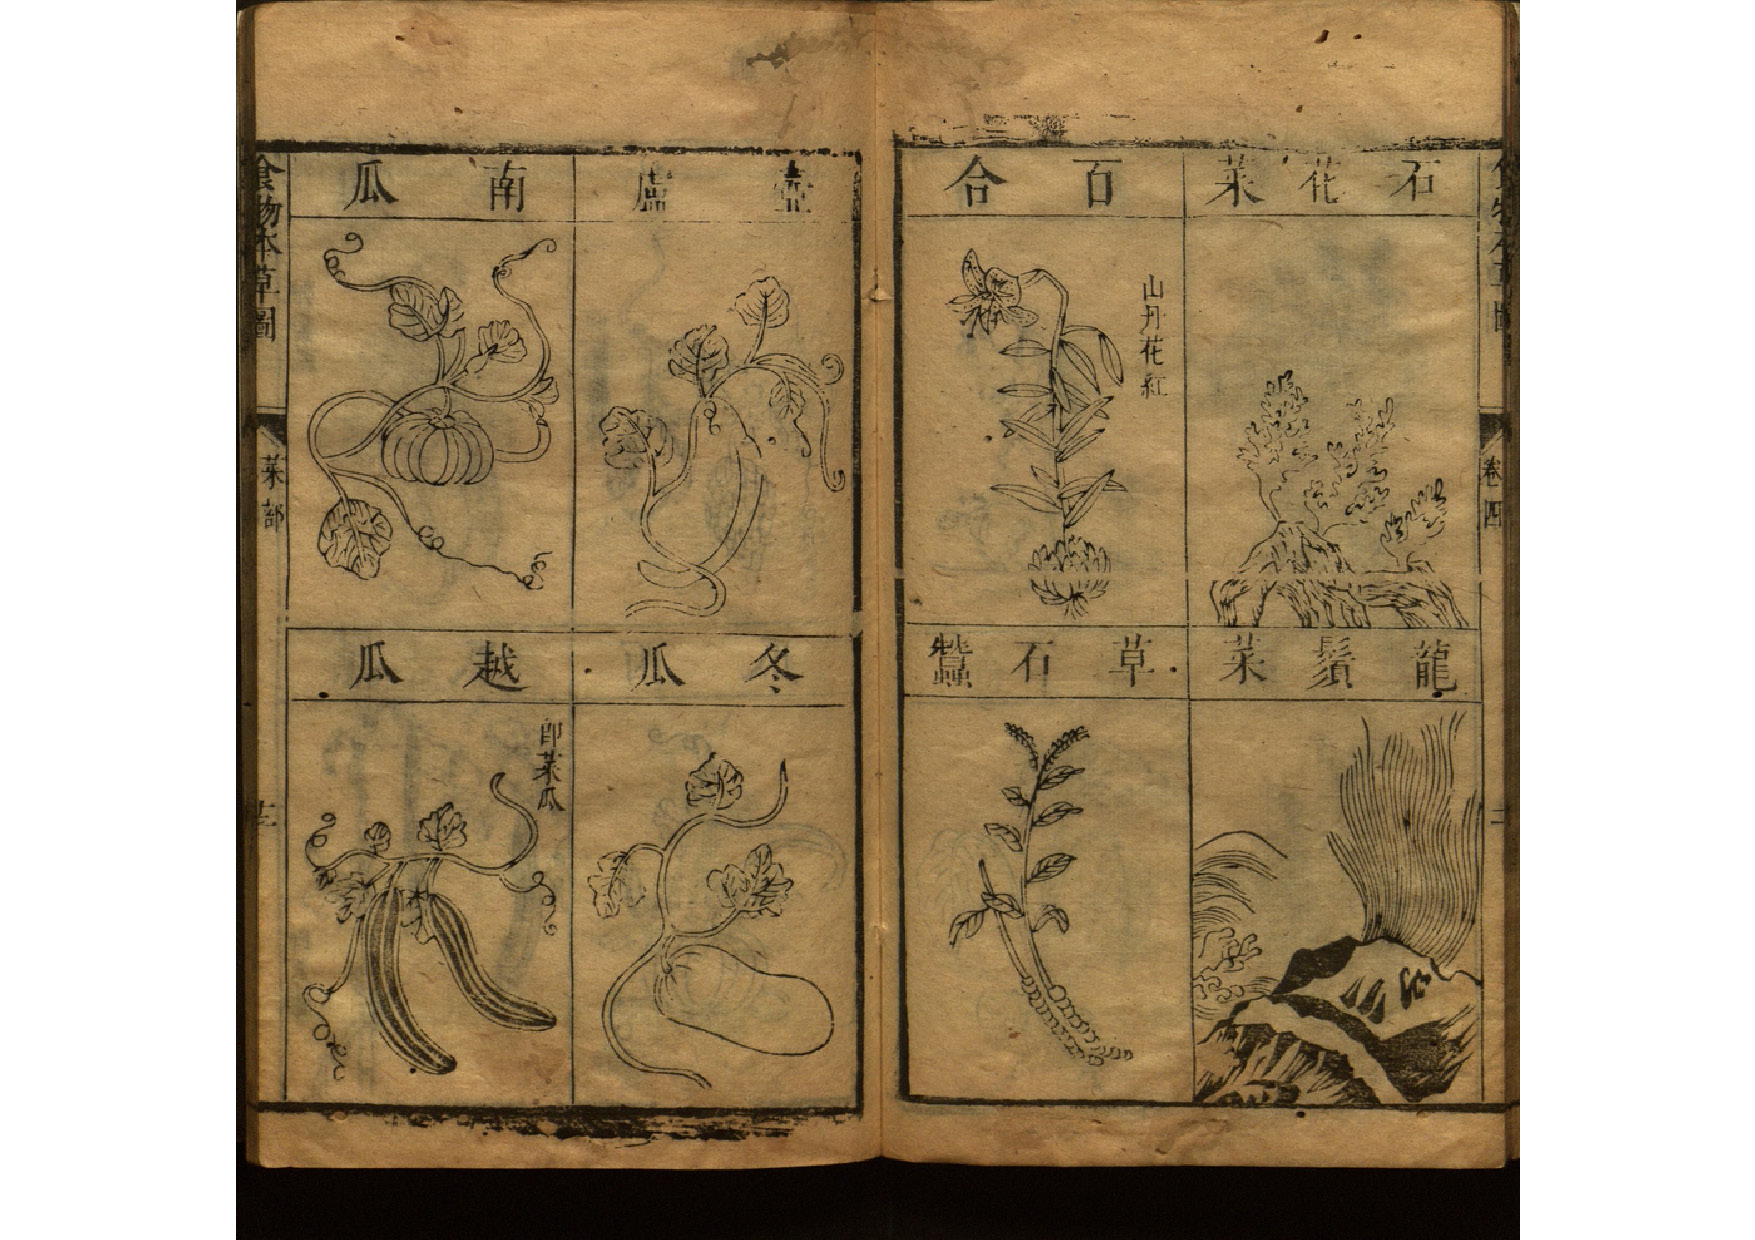 石花菜
百合
山丹花紅
龍鬚菜
草石蠶
卷四
壺盧
南瓜
冬瓜
越瓜
即菜瓜
食物本草圖
菜部